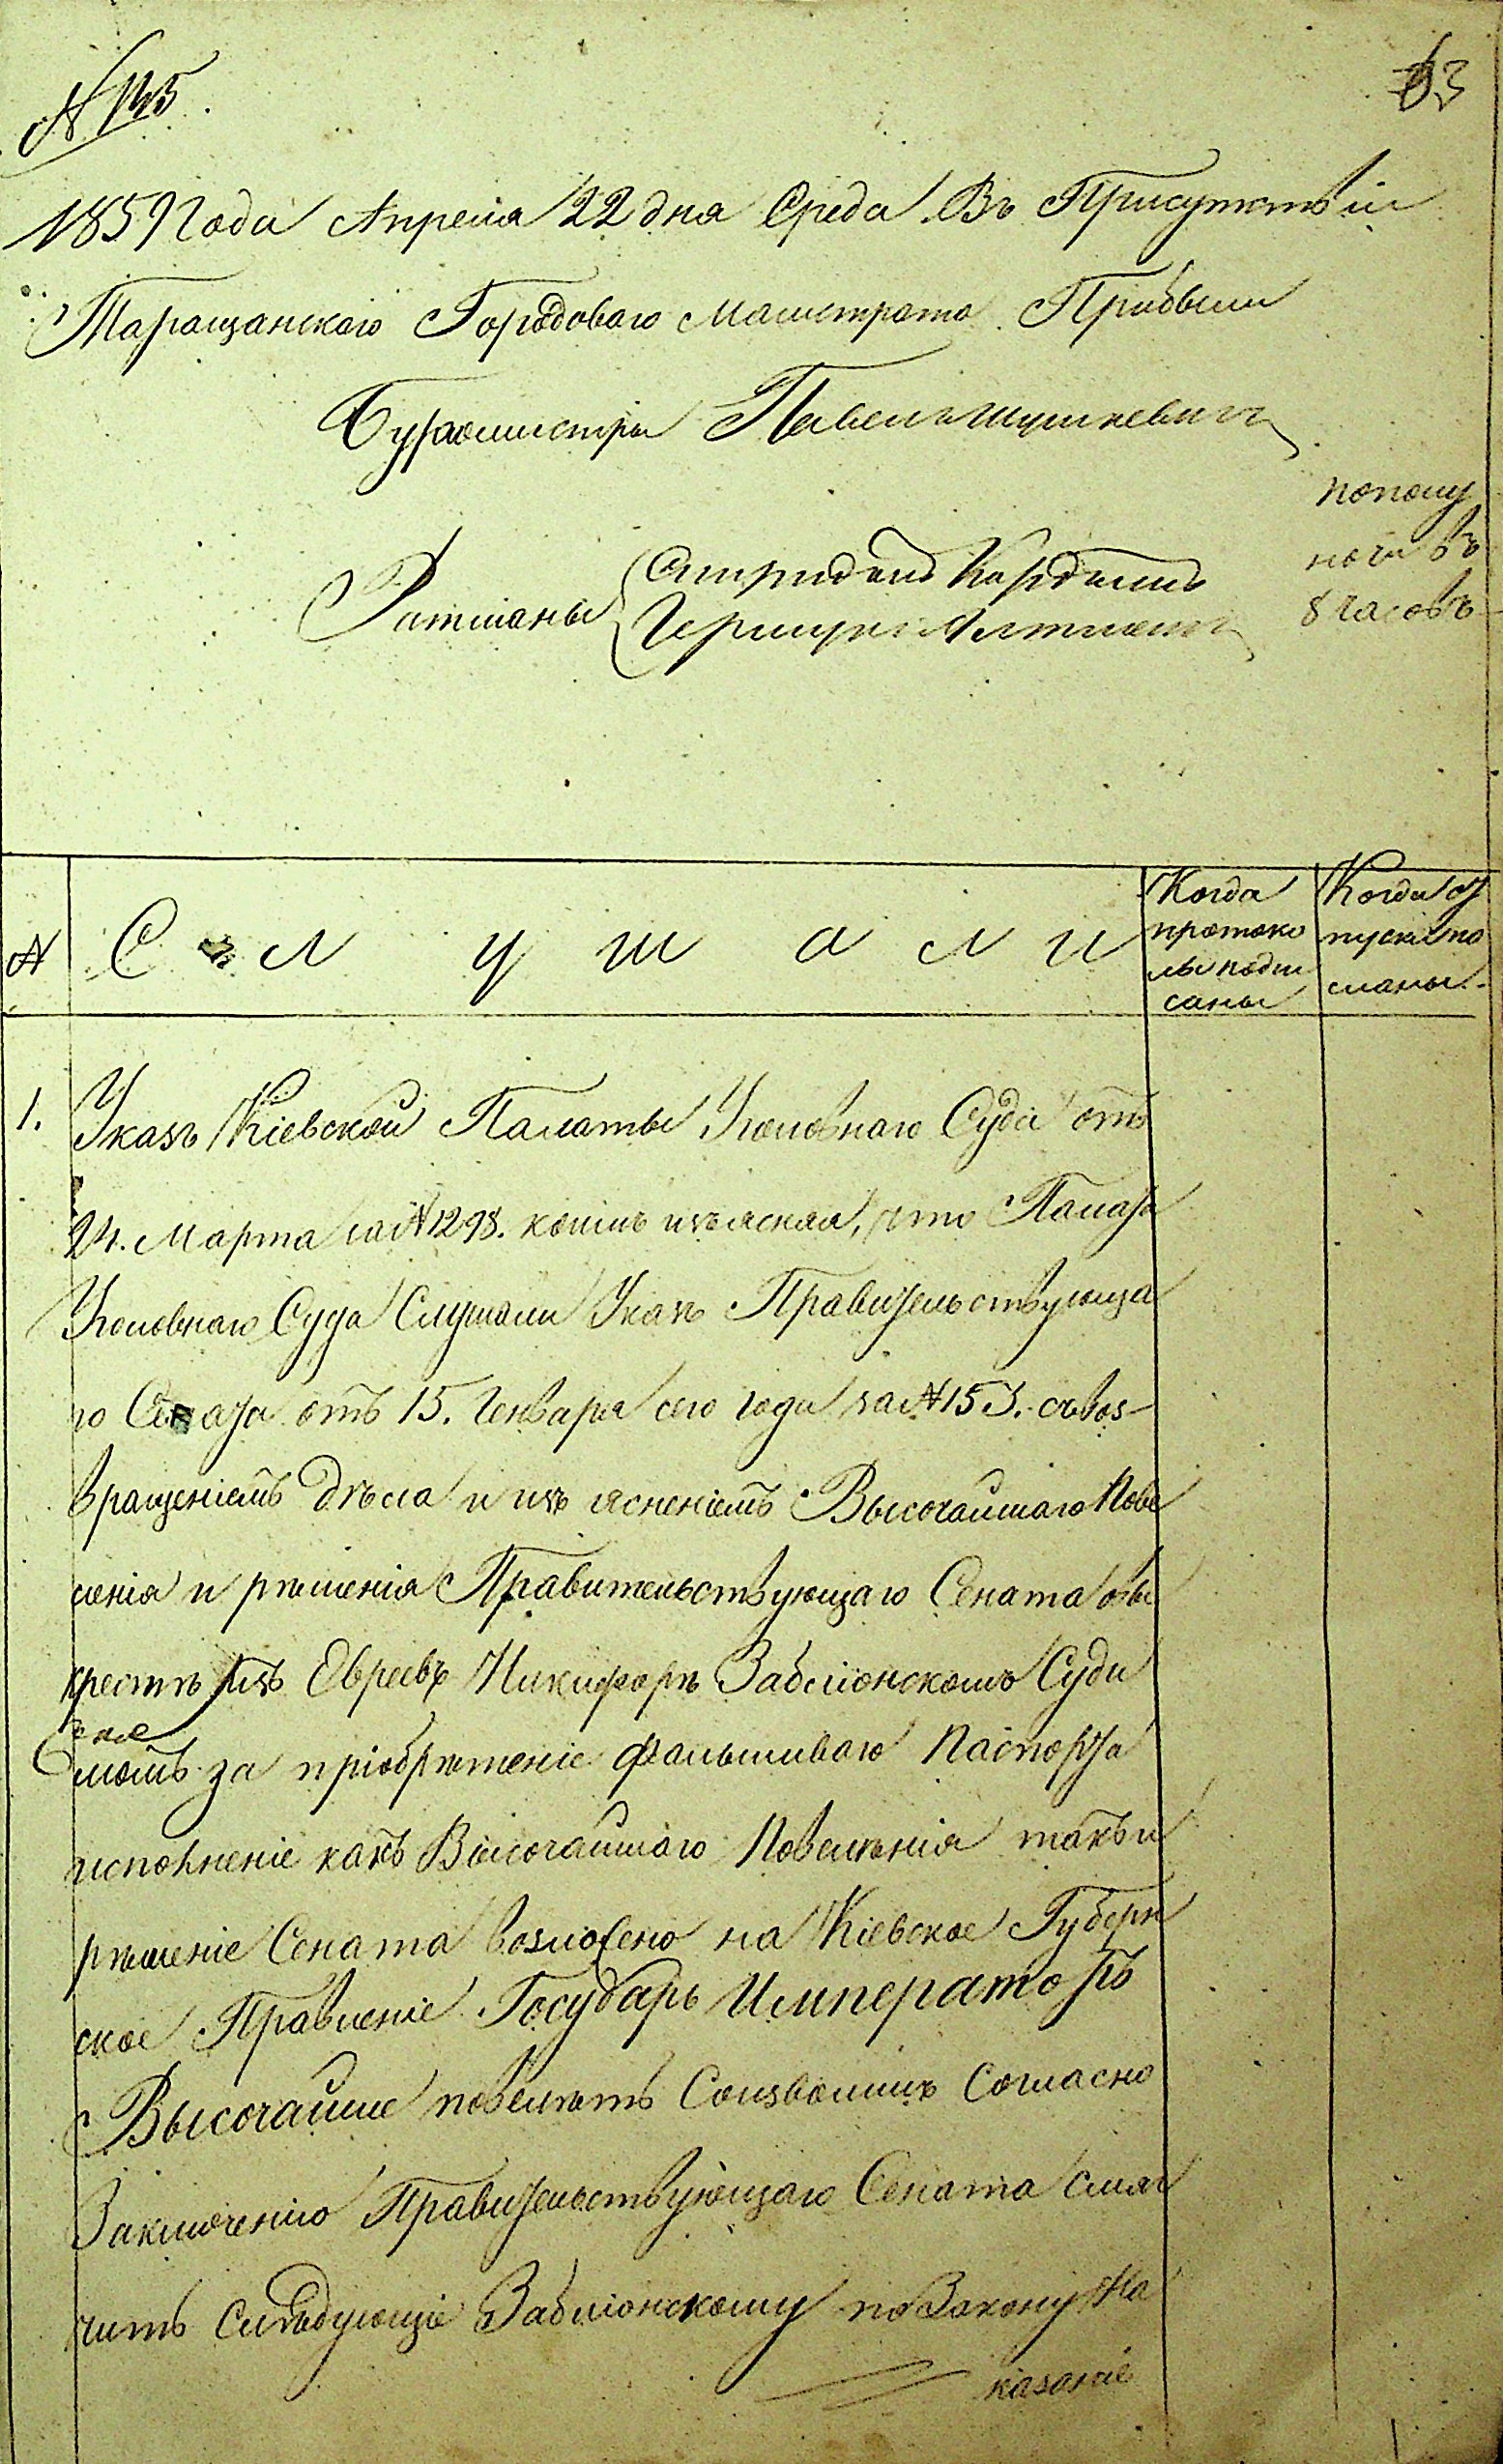 № 145.
63
1859 года Апреля 22 дня Среда Въ Присутствіи
Таращанскаго Городоваго Магистрата Прибыли
Бургомистры Павелъ
Ратманы Спиридонъ
по полу
ночи въ
8 часовъ
№ Слушали
Когда протоколы подписаны
Когда отпуски посланы.
1. Указъ Кіевской Палаты Уголовнаго Суда отъ
24. Марта за № 1298. коимъ изъясняя, что Палата
Уголовнаго Суда Слушали Указъ Правительствующа
го Сената отъ 15. Генваря сего года за № 153. съ воз-
вращеніемъ дѣла и изъясненіемъ Высочайшаго Пове
ленія и рѣшенія Правительствующаго Сената о вы
крестѣ изъ Евреевъ Никифорѣ Заблонскомъ Суди
момъ за пріобрѣтеніе фальшиваго Паспорта
исполненіе какъ Высочайшаго Повелѣнія такъ и
рѣшеніе Сената возложено на Кіевское Губерн
ское Правленіе Государь Императоръ
Высочайше повелѣть Соизволилъ Согласно
Заключенію Правительствующаго Сената смяг
чить Слѣдующіе Заблонскому по Закону На
казаніе